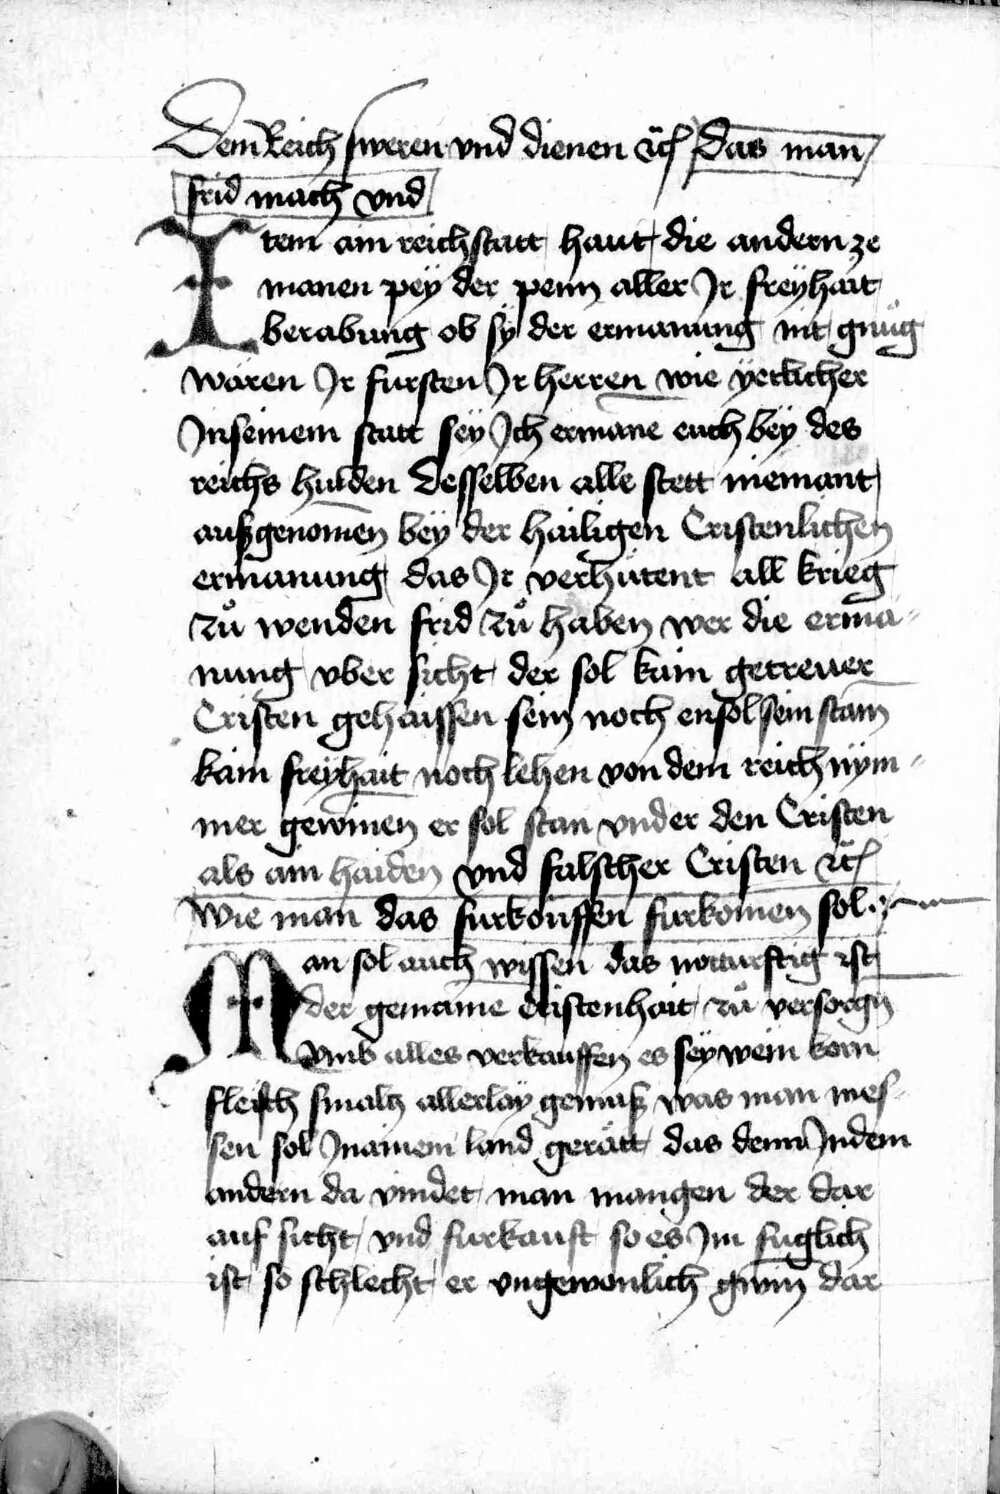 Dem Reich sweren vnd dienen ꝛc̃ Das man
frid mach vnd
Item ain reichstatt haut die andern ze
manen pey der penn aller Jr freyhait
berabung ob sÿ der ermanung nit gnůg
wären Jr fursten Jr herren wie ÿetlicher
Jn seinem statt seÿ Jch ermane euch beÿ des
reichs hulden desselben alle stett niemant
außgenomen beÿ der hailigen Cristenlichen
ermanung das Jr verhütent all krieg
zů wenden frid zů haben wer die erma-
nung vber sicht der sol kain getreuer
Cristen gehaissen sein noch en sol sein stam
kain freÿhait noch lehen von dem reich nÿm-
mer gewinen er sol stan vnder den Cristen
als ain haiden vnd falscher Cristen ꝛc̃
Wie man das furkouffen furkomen sol
Man sol auch wissen das notturftig ist
der gemaine cristenhait zů versorgn
vmb alles verkauffen es seÿ wein korn
fleisch smaltz allerlaÿ gemuß was man mes-
sen sol Jn ainem land gerätt das denn Jn dem
andern da vindet man mangen der dar
auf sicht vnd furkauft so es Jm fuglich
ist so schlecht er vngewonlich gwin dar